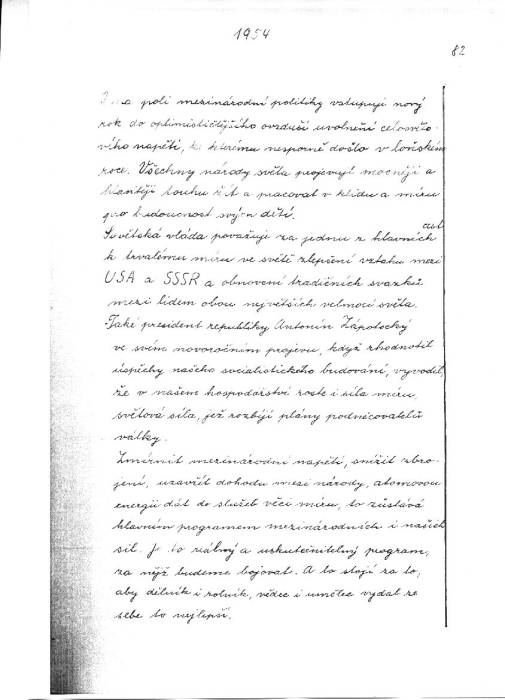 1954
82
poli mezinárodní politiky vstupuje nový
rok do optimističtějšího ovzduší uvolnění celosvěto-
vého napětí, ke kterému nesporně došlo v loňském
roce. Všechny národy světa projevují mocněji a
hlasitěji touhu žít a pracovat v klidu a míru
pro budoucnost svých dětí.
Sovětská vláda považuje za jednu z hlavních cest
k trvalému míru ve světě zlepšení vztahu mezi
USA a SSSR a obnovení tradičních svazků
mezi lidem obou největších velmocí světa.
Také president republiky Antonín Zápotocký
ve svém novoročním projevu, když zhodnotil
úspěchy našeho socialistického budování, vyvodil,
že v našem hospodářství roste i síla míru,
světová síla, jež rozbíjí plány podněcovatelů
války.
Zmírnit mezinárodní napětí, snížit zbro-
jení, uzavřít dohodu mezi národy, atomovou
energii dát do služeb věci míru, to zůstává
hlavním programem mezinárodních i našich
sil. Je to reálný a uskutečnitelný program,
za nějž budeme bojovat. A to stojí za to,
aby dělník i rolník, vědec i umělec vydal ze
sebe to nejlepší.